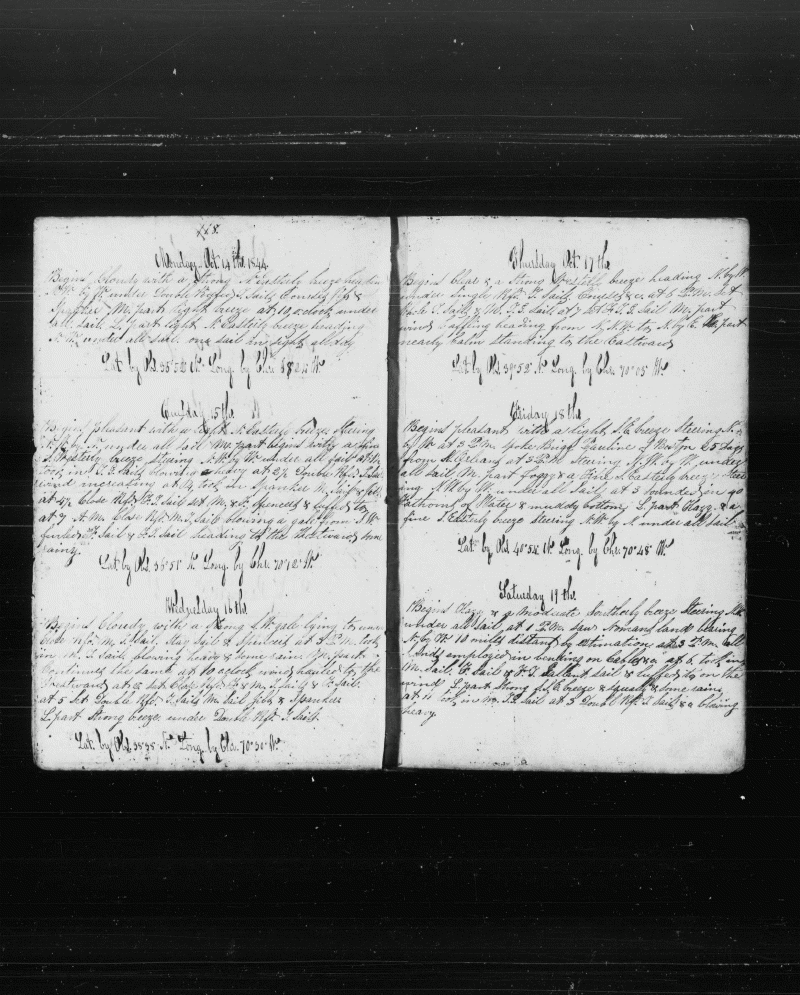 Monday Oct 14th 1844
Begins Cloudy with a Strong N. Easterly breeze heading
by W. under Double Reefed T. Sails, Foresail, Jib &
Spanker, M. part light breeze at 10, o,clock under
all sail. L. part light N. Easterly breeze heading
N. W. under all sail. one sail in sight all day
Lat. by Obs. 35°52 N. Long. by Chr.
Tuesday 15th
Begins pleasant with a light N. Easterly breeze, Steering
under all sail M. part begins with a fine
Easterly breeze Steering N.W. by W. under all sail at 1/2
took in T.G. Sails blowing heavy at 2 1/2 Double Rft. T. Sails
wind increasing at 4 took in Spanker M. Sail & Jib,
at 4 1/2 Close Rft. T. Sail set M. & F. Spencers & luffed to,
at 7 A.M. Close Rft. M.T. Sail blowing a gale from N.W.
furled F. Sail & F.T. Sail heading to the Westward, some
rainy.
Lat by Obs. 35°51 N. Long. by Chr. 70°12 W.
Wednesday 16th
Begins Cloudy with a Strong S.W. gale lying to under
Close Rft. M. T. Sail, Stay Sail & Spencers at 3 P.M. took
in M. T. Sail, blowing heavy & some rain M. part
Continues the same at 10 o,clock wind hauled to the
Westward at 12 set Close Rft. F. & M. T. Sails & F. Sail.
at 5 Set Double Rft. T. Sails M. Sail Jib, & Spanker
L. part Strong breeze under Double Rft. T. Sails.
Lat. by Obs. 35°35 N. Long. by Chr. 70°30 W.
Thursday Oct 17th
Begins Clear & a Strong Westerly breeze heading N. by W.
under Single Rft. T. Sails, Courses & c. at 6 P.M. Set
T. Sails, & M. T. G. Sail at 7 set F. T. G. Sail M. part
wind baffling heading from N.N.W. to N. by E. L. part
nearly Calm Standing to the Eastward
Lat by Obs. 39°52 N. Long. by Chr. 70°05 W.
Friday 18th
Begins pleasant with a light S.E. breeze Steering N.
by W. at 3 P.M. Spoke Brigg Pauline of Boston 25 Days
from N. Orleans at 3 P.M. Steering N.W. by W. under
all sail M. part Foggy & a fine S. Easterly breeze Steer
ing N.W. by W. under all sail, at 3 Sounded in 40
Fathoms of Water & muddy bottom, L. part Hazy & a
fine S. Easterly breeze Steering N.W. by N. under all Sail.
Lat. by Obs. 40°54 N. Long. by Chr. 70°48 W.
Saturday 19th
Begins Hazy & a moderate Southerly breeze Steering N.W.
under all sail, at 1 P.M. saw Nomans land bearing
N. by W. 18 miles distant by estimation at 3 P.M. all
hands employed in bending on Cables & c. at 6 took in
M. Sail, F. Sail & F. T. Gallant sail & luffed to on the
wind L. part Strong S.E. breeze & Squally & some rainy
at 11 took in M. T. G. Sail at 3 Double Rft. T. Sails, & a blowing
heavy.